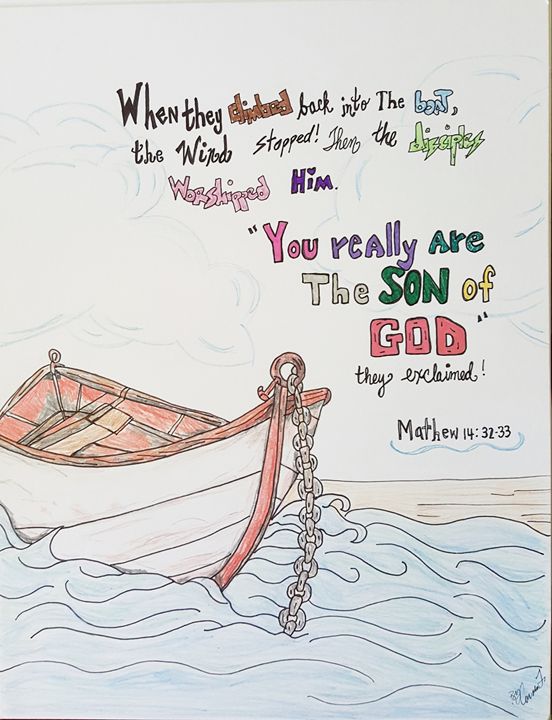 When they climbed back into The boat,
the Wind stopped! Then the disciples
Worshipped Him.
"You really are
The SON of
GOD"
they exclaimed!
Mathew 14:32-33